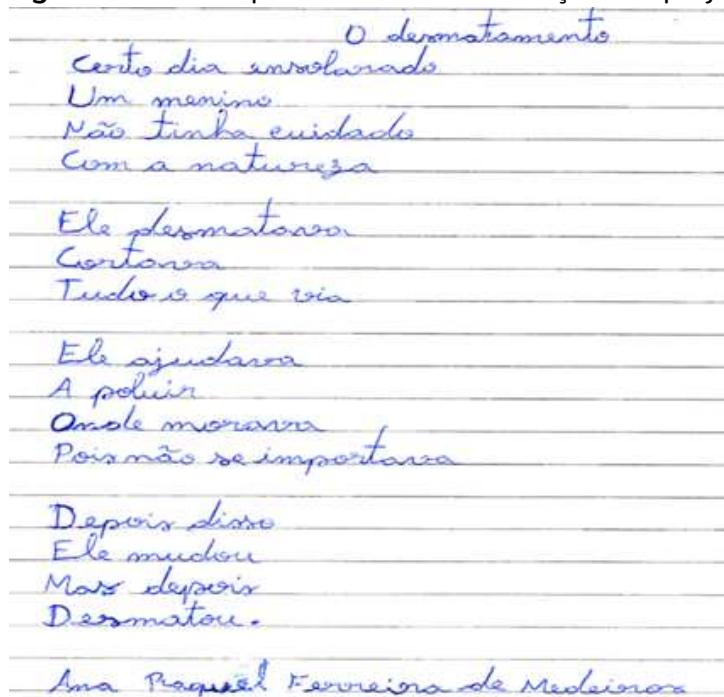 O desmatamento
Certo dia ensolarado
Um menino
Não tinha cuidado
Com a natureza
Ele desmatava
Cortava
Tudo o que via
Ele ajudava
A poluir
Onde morava
Pois não se importava
Depois disso
Ele mudou
Mas depois
Desmatou.
Ana Raquel Ferreira de Medeiros